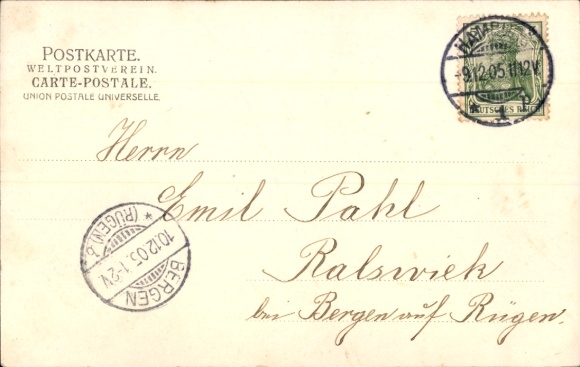 POSTKARTE.
WELTPOSTVEREIN.
CARTE-POSTALE.
UNION POSTALE UNIVERSELLE.
HAMBURG
-9.12.05.11-12V
* 1 p
DEUTSCHES REICH
Herrn
Emil Pahl
Ralswiek
bei Bergen auf Rügen.
BERGEN
10.12.05.1-2N
* (RÜGEN) b